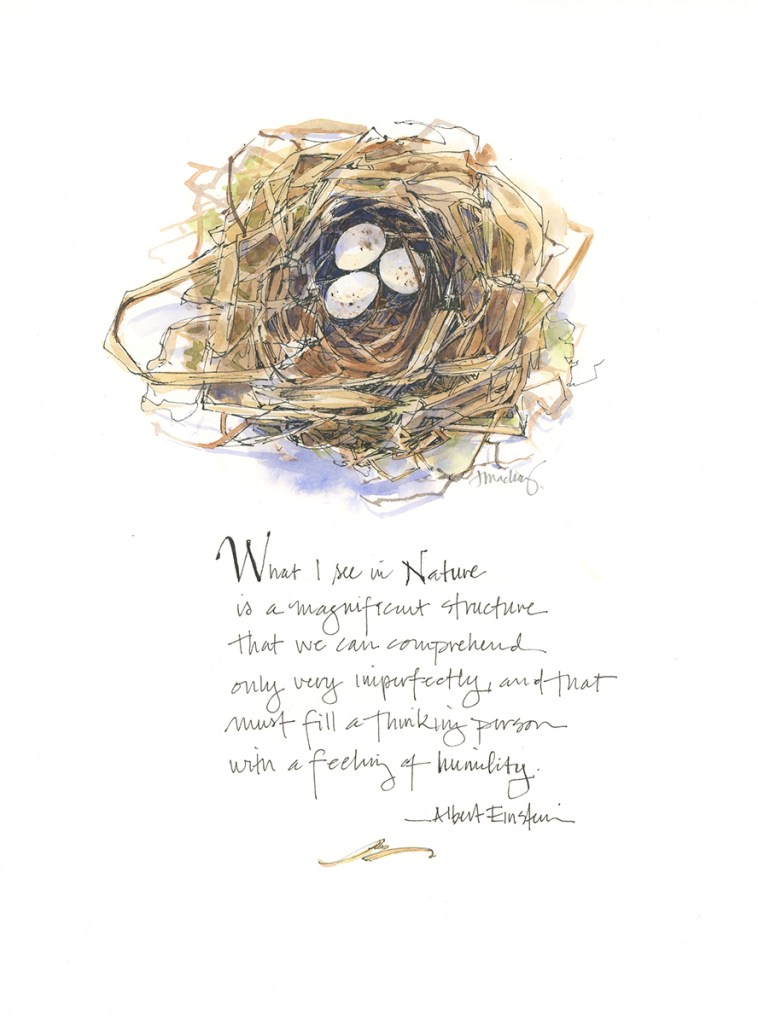 What I see in Nature
is a magnificent structure
that we can comprehend
only very imperfectly, and that
must fill a thinking person
with a feeling of humility.
—Albert Einstein